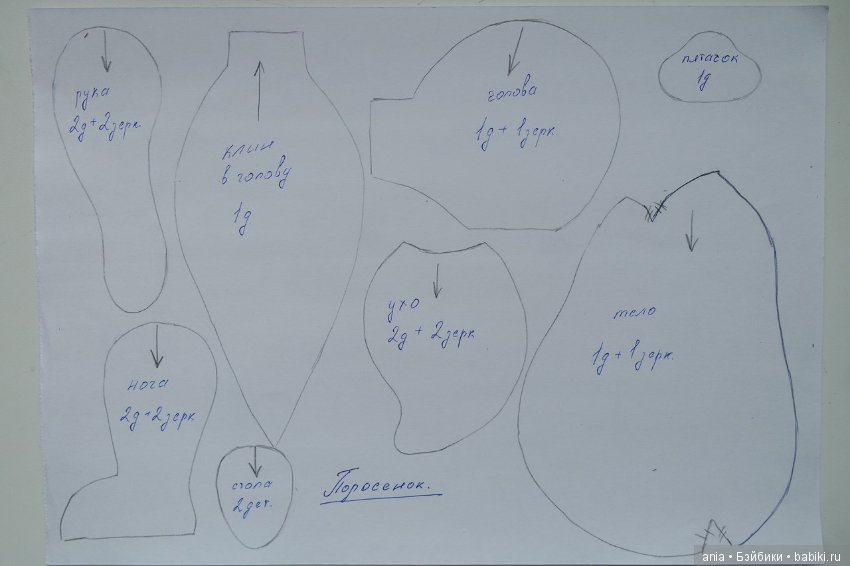 рука
2д + 2зерк.
клин
в голову
1д
голова
1д + 1зерк.
пятачок
1д
ухо
2д + 2зерк
тело
1д + 1зерк.
нога
2д + 2зерк
стопа
2дет.
Поросенок.
ania • Бэйбики • babiki.ru